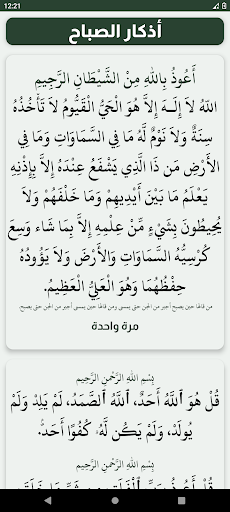 12:21
أذكار الصباح
أَعُوذُ بِاللهِ مِنْ الشَّيْطَانِ الرَّجِيمِ
اللّهُ لاَ إِلَـهَ إِلاَّ هُوَ الْحَيُّ الْقَيُّومُ لاَ تَأْخُذُهُ
سِنَةٌ وَلاَ نَوْمٌ لَّهُ مَا فِي السَّمَاوَاتِ وَمَا فِي
الأَرْضِ مَن ذَا الَّذِي يَشْفَعُ عِنْدَهُ إِلاَّ بِإِذْنِهِ
يَعْلَمُ مَا بَيْنَ أَيْدِيهِمْ وَمَا خَلْفَهُمْ وَلاَ
يُحِيطُونَ بِشَيْءٍ مِّنْ عِلْمِهِ إِلاَّ بِمَا شَاء وَسِعَ
كُرْسِيُّهُ السَّمَاوَاتِ وَالأَرْضَ وَلاَ يَؤُودُهُ
حِفْظُهُمَا وَهُوَ الْعَلِيُّ الْعَظِيمُ.
من قالها حين يصبح أجير من الجن حتى يمسى ومن قالها حين يمسى أجير من الجن حتى يصبح.
مرة واحدة
بِسْمِ اللهِ الرَّحْمنِ الرَّحِيم
قُلْ هُوَ ٱللَّهُ أَحَدٌ، ٱللَّهُ ٱلصَّمَدُ، لَمْ يَلِدْ وَلَمْ
يُولَدْ، وَلَمْ يَكُن لَّهُۥ كُفُوًا أَحَدٌۢ.
بِسْمِ اللهِ الرَّحْمنِ الرَّحِيم
قُلْ أَعُوذُ بِرَبِّ ٱلْفَلَقِ، مِن شَرِّ مَا خَلَقَ